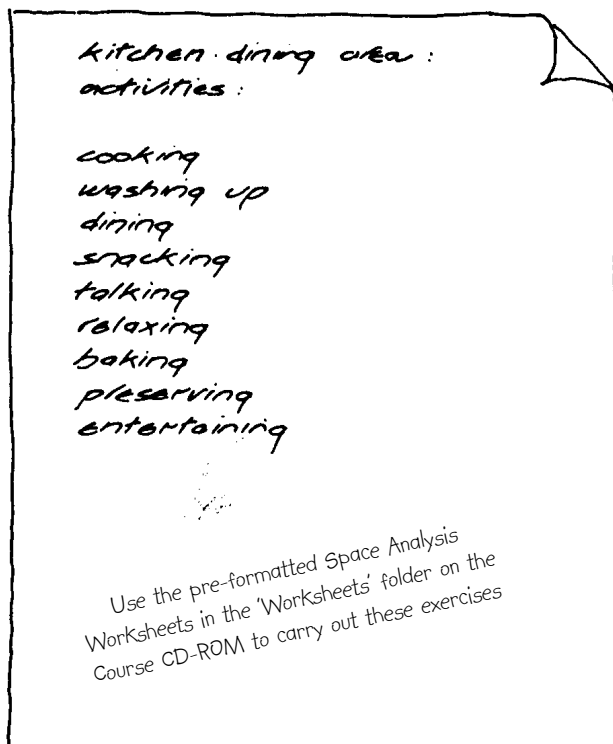 kitchen·dining area :
activities :
cooking
washing up
dining
snacking
talking
relaxing
baking
preserving
entertaining
Use the pre-formatted Space Analysis
Worksheets in the 'Worksheets' folder on the
Course CD-ROM to carry out these exercises